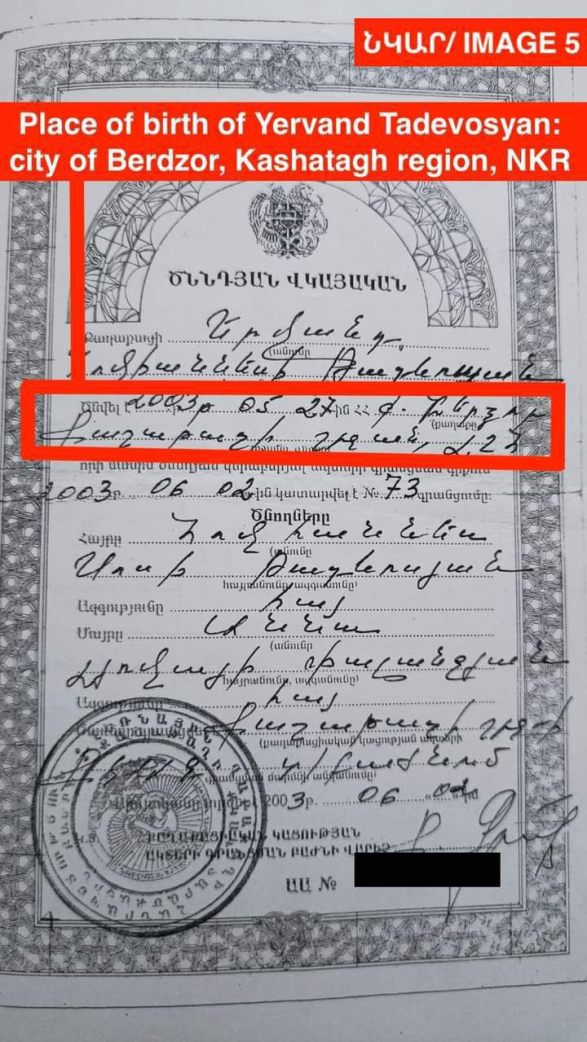 ՆԿԱՐ/ IMAGE 5
Place of birth of Yervand Tadevosyan:
city of Berdzor, Kashatagh region, NKR
ԾՆՆԴՅԱՆ ՎԿԱՅԱԿԱՆ
Քաղաքացի Երվանդ
(անունը
Հովհաննեսի Թադևոսյան
Ծնվել է 2003թ 05 27ին ՀՀ ք. Բերձոր
(քաղաքը)
Քաշաթաղի շրջան, ԼՂՀ
որի մասին ծննդյան գրանցման գրքում
2003թ. 06 02ին կատարվել է № 73 գրանցումը:
Ծնողները
Հայրը Հովհաննես
(անունը
Սոսի Թադևոսյան
հայրանունը, ազգանունը)
Ազգությունը հայ
Մայրը Աննա
(անունը
հայրանունը, ազգանունը)
Ազգությունը հայ
Քաշաթաղի շրջ-ի
(քաղաքացիական կացության ակտերի
գրանցման մարմնի անվանումը)
2003թ. 06 02 ին
Կ.Տ. ՔԱՂԱՔԱՑԻԱԿԱՆ ԿԱՑՈՒԹՅԱՆ
ԱԿՏԵՐԻ ԳՐԱՆՑՄԱՆ ԲԱԺՆԻ ՎԱՐԻՉ
ԱԱ №